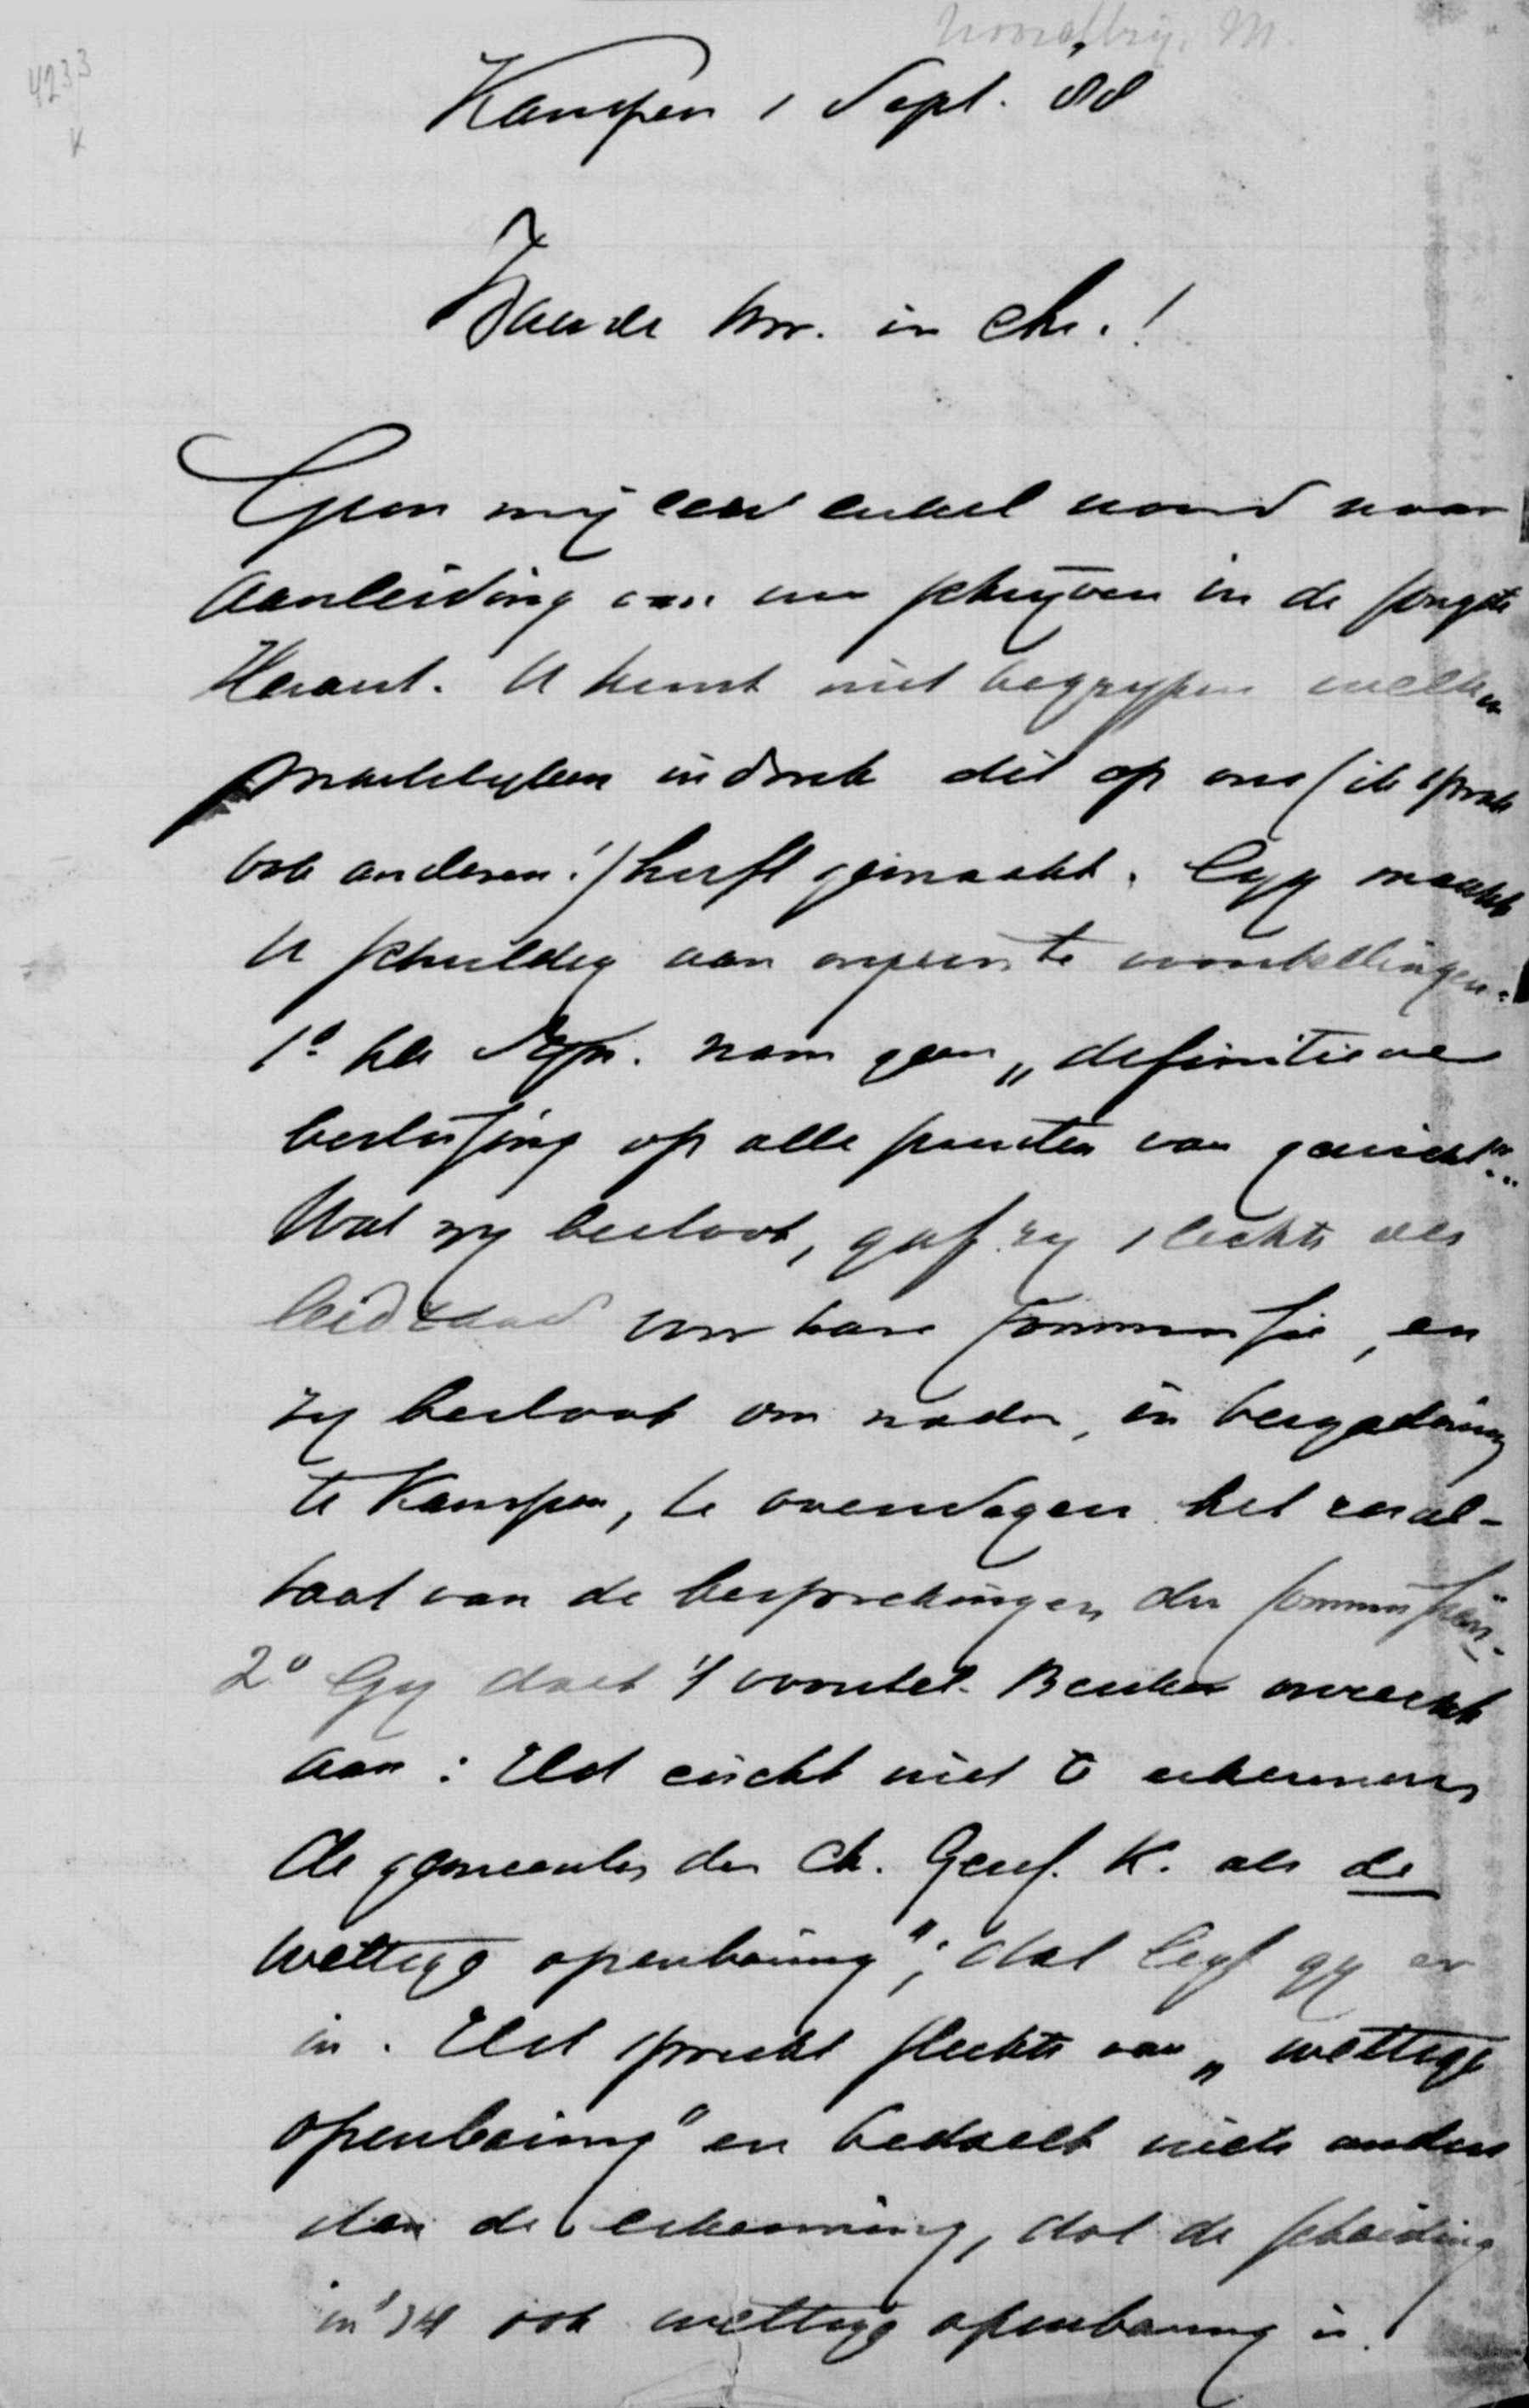 4233
K
Noordtzij. M.
Kampen 1 Sept. 88
Waarde br. in Chr.!
Gun mij een enkel woord naar
aanleiding van uw schrijven in de jongste
Heraut. U kunt niet begrypen welken
smartelyken indruk dit op ons (ik sprak
ook anderen!) heeft gemaakt. Ggy maakt
U schuldig aan onjuiste voorstellingen.
1o. de Syn. nam geen „definitieve
beslissing op alle punten van gewicht"..
Wat zy besloot, gaf zy slechts als
leidraad voor hare Commissie, en
zy besloot om nader, in vergadering
te Kampen, te overwegen het resul-
taat van de besprekingen der Commissiën.
2o Gy doet 't voorstel Beuker onrecht
aan: Het eischt niet te erkennen
de ggemeenten der Ch. Geref. K. als de
wettige openbaring"; dat legt gy er
in. Het spreekt slechts van „wettige
openbaring" en bedoelt niets anders
dan de erkenning, dat de scheiding
in '34 ook wettige openbaring is.